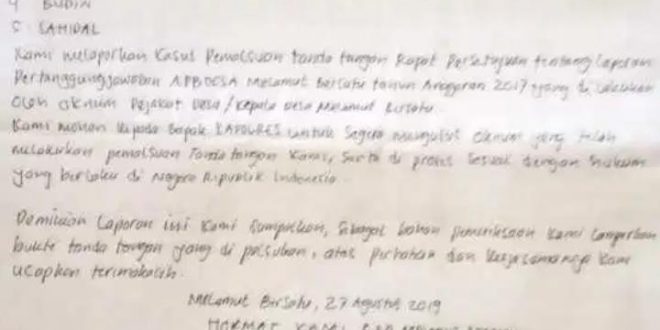 4 BUDIN
5. SAHIDAL
Kami melaporkan Kasus Pemalsuan tanda tangan Rapat Persetujuan tentang Laporan
Pertanggungjawaban APBDESA Melamut Bersatu tahun Anggaran 2017 yang di lakukan
Oleh oknum Pejabat Desa / Kepala Desa Melamut Bersatu.
Kami mohon kepada Bapak KAPOLRES untuk Segera mengusut oknum yang telah
melakukan pemalsuan Tanda tangan Kami, Serta di proses Sesuai dengan hukum
yang berlaku di Negara Republik Indonesia.
Demikian Laporan ini Kami Sampaikan, Sebagai bahan pemeriksaan Kami lampirkan
bukti tanda tangan yang di palsukan, atas perhatian dan Kerjasamanya Kami
ucapkan terimakasih.
Melamut Bersatu, 27 Agustus 2019
HORMAT KAMI